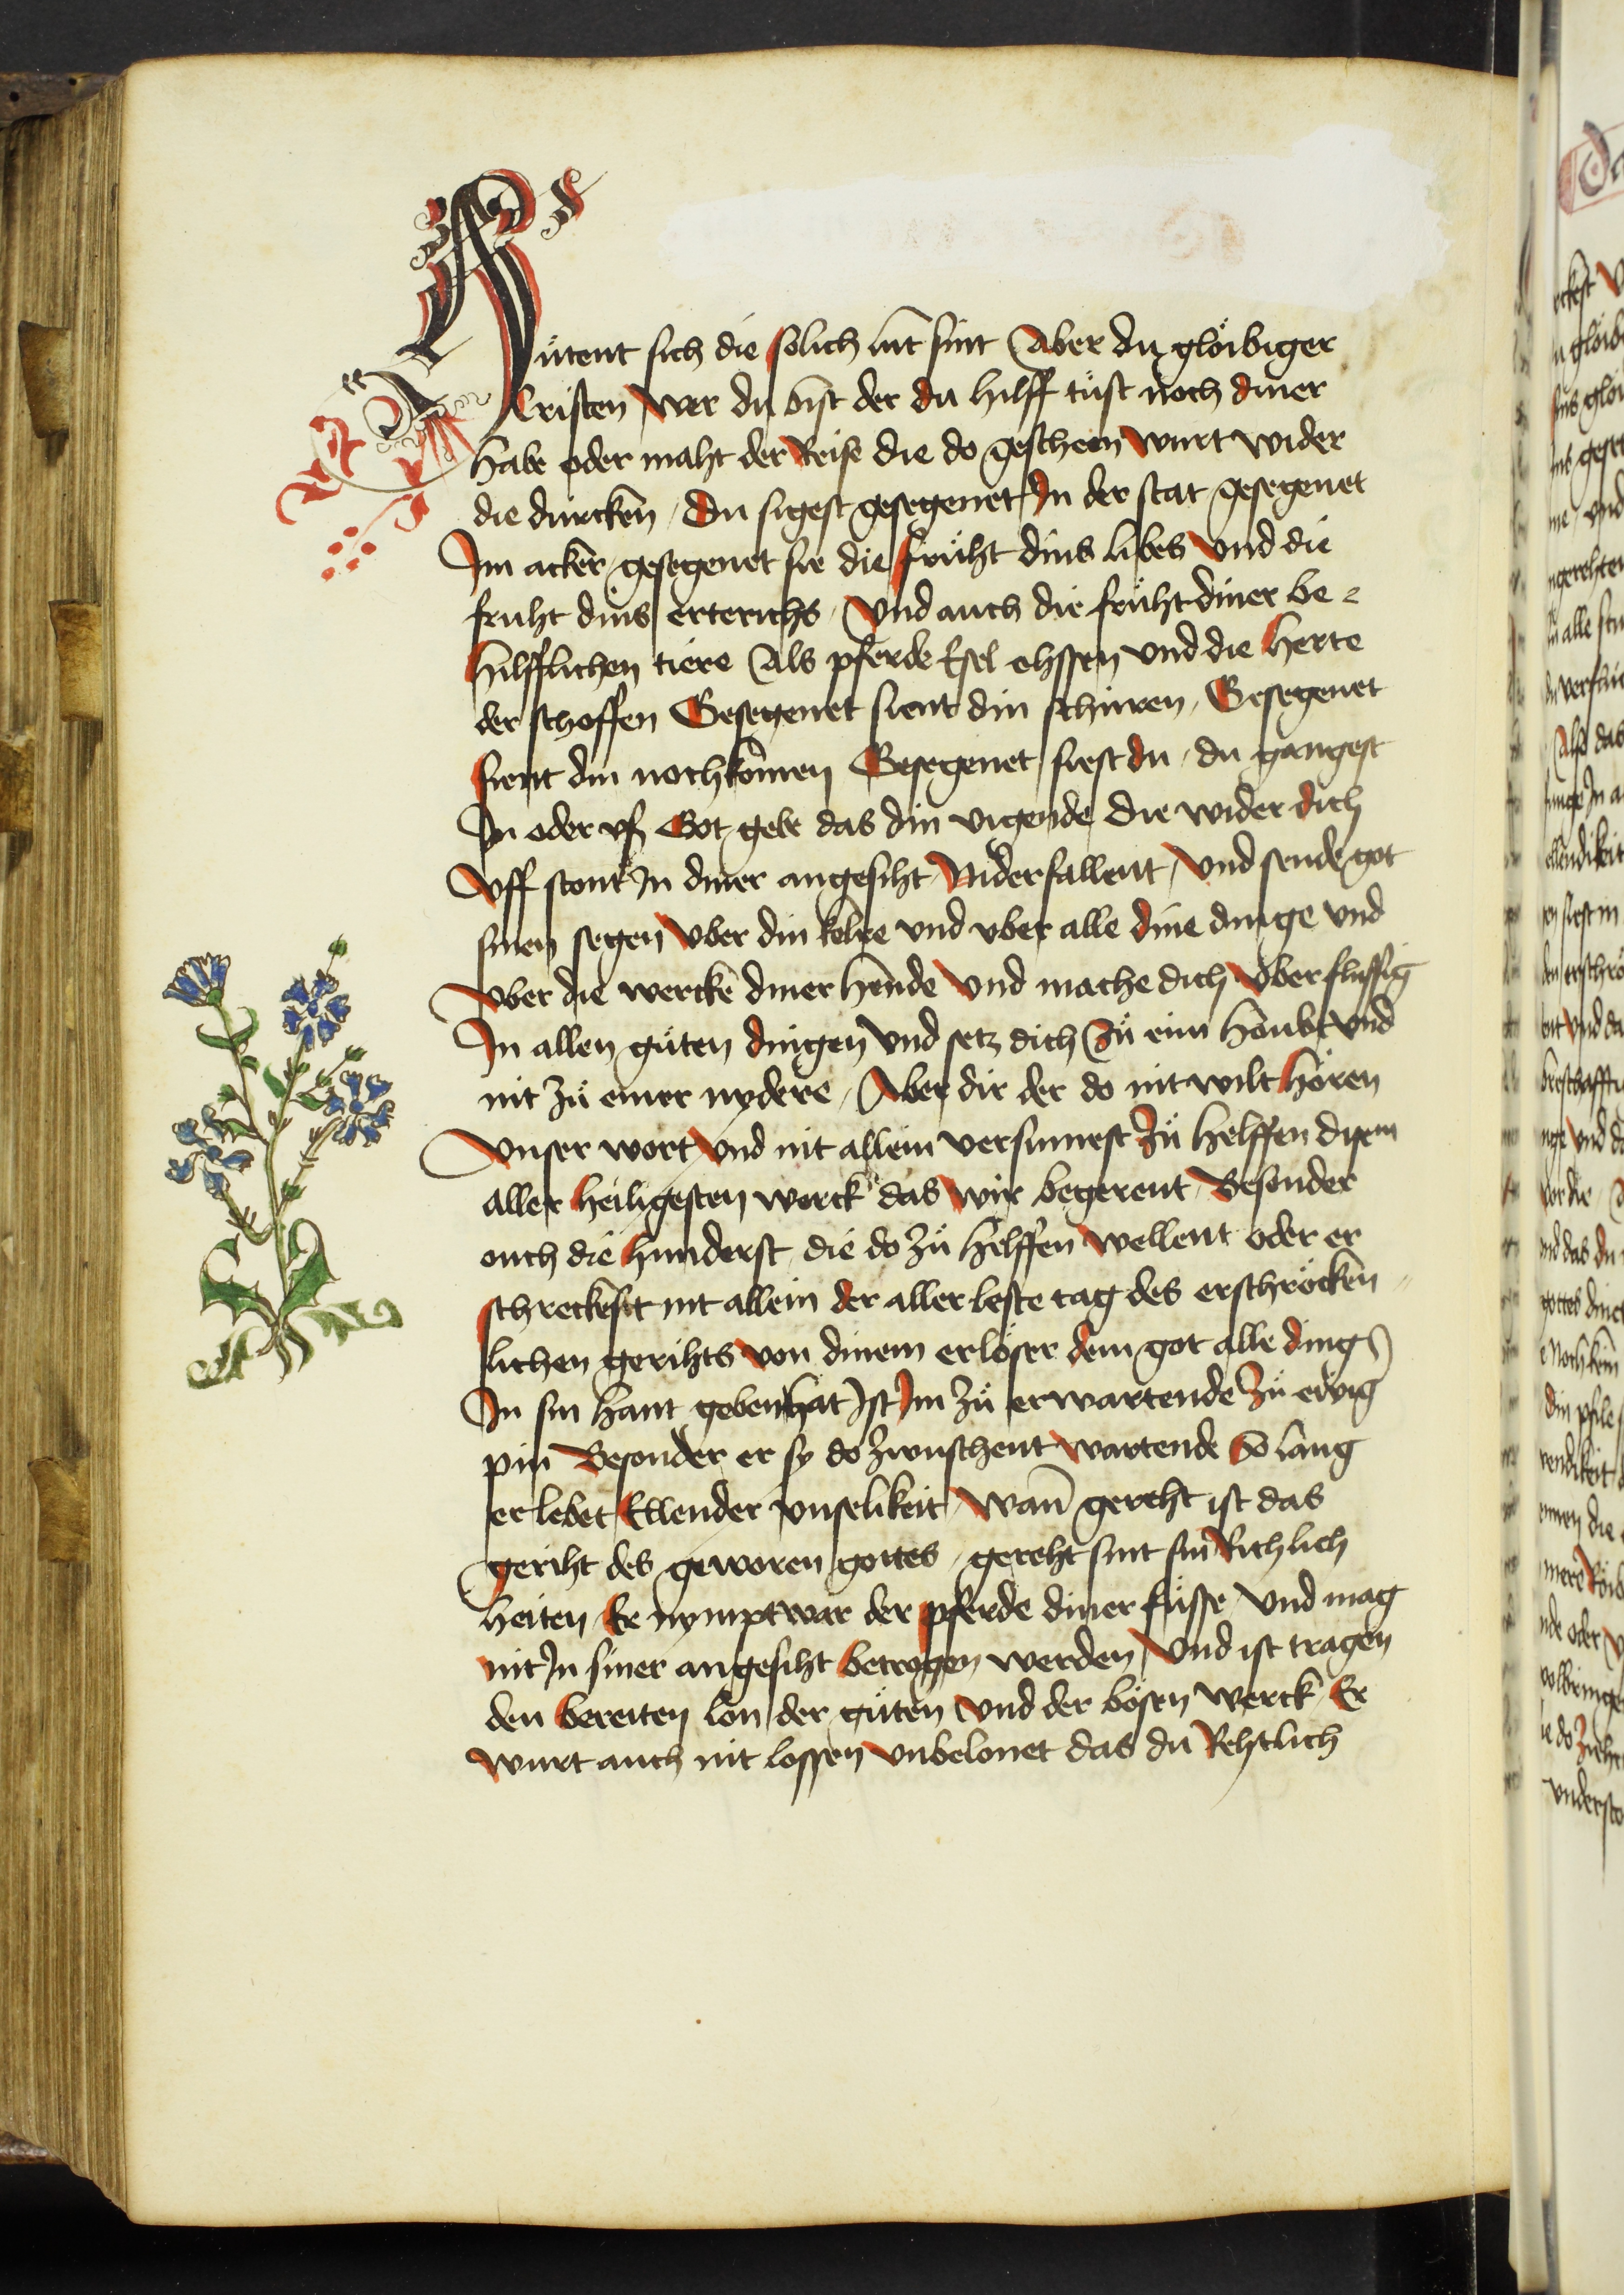 Hütent sich die solich lüt sint Aber du glöibiger
Cristen wer du bist der du hilff tüst noch diner
habe oder maht der Reise die do gescheen wurt wider
die durcken / Du sigest gesegenet In der stat gesegenet
Im acker / gesegenet sie die früht dins libes Vnd die
fruht dins erterichs / Vnd auch die früht diner be⸗
hilfflichen tiere Als pferde Esel ohssen vnd die herte
der schoffen Gesegenet sient din schüren / Gesegenet
sient din nochkomen Gesegenet siest du / du gangest
In oder vß Got gebe das din vigende die wider dich
Vff stont In diner angesiht Niderfallent / Vnd sende got
sinen segen Vber din kelre vnd vber alle dine dinge vnd
Vber die wercke diner hende Vnd mache dich Vberflussig
In allen güten dingen Vnd setz dich Zü eim houbt vnd
nit zü einer nydere / Aber dir der do nit wilt hören
Vnser wort Vnd nit allein versumest Zü helffen disem
aller heiligesten werck das wir begerent Besonder
ouch die hinderst die do zü helffen wellent oder er
schreckest nit allein der aller leste tag des erschröcken⸗
lichen gerihts von dinem erlöser dem got alle ding
In sin hant geben hat Ist Im zü erwartende Zü ewig
pin Besonder er sy do zwuschent wartende So lang
er lebet Ellender vnselikeit / Wann gereht ist das
geriht des geworen gottes / gereht sint sin Richlich
heiten Er nympt war der pferde diner füsse / Vnd mag
nit In siner angesiht betrogen werden Vnd ist tragen
den bereiten lon der güten Vnd der bösen werck Er
Wurt auch nit lossen Vnbelonet das du Rehtlich